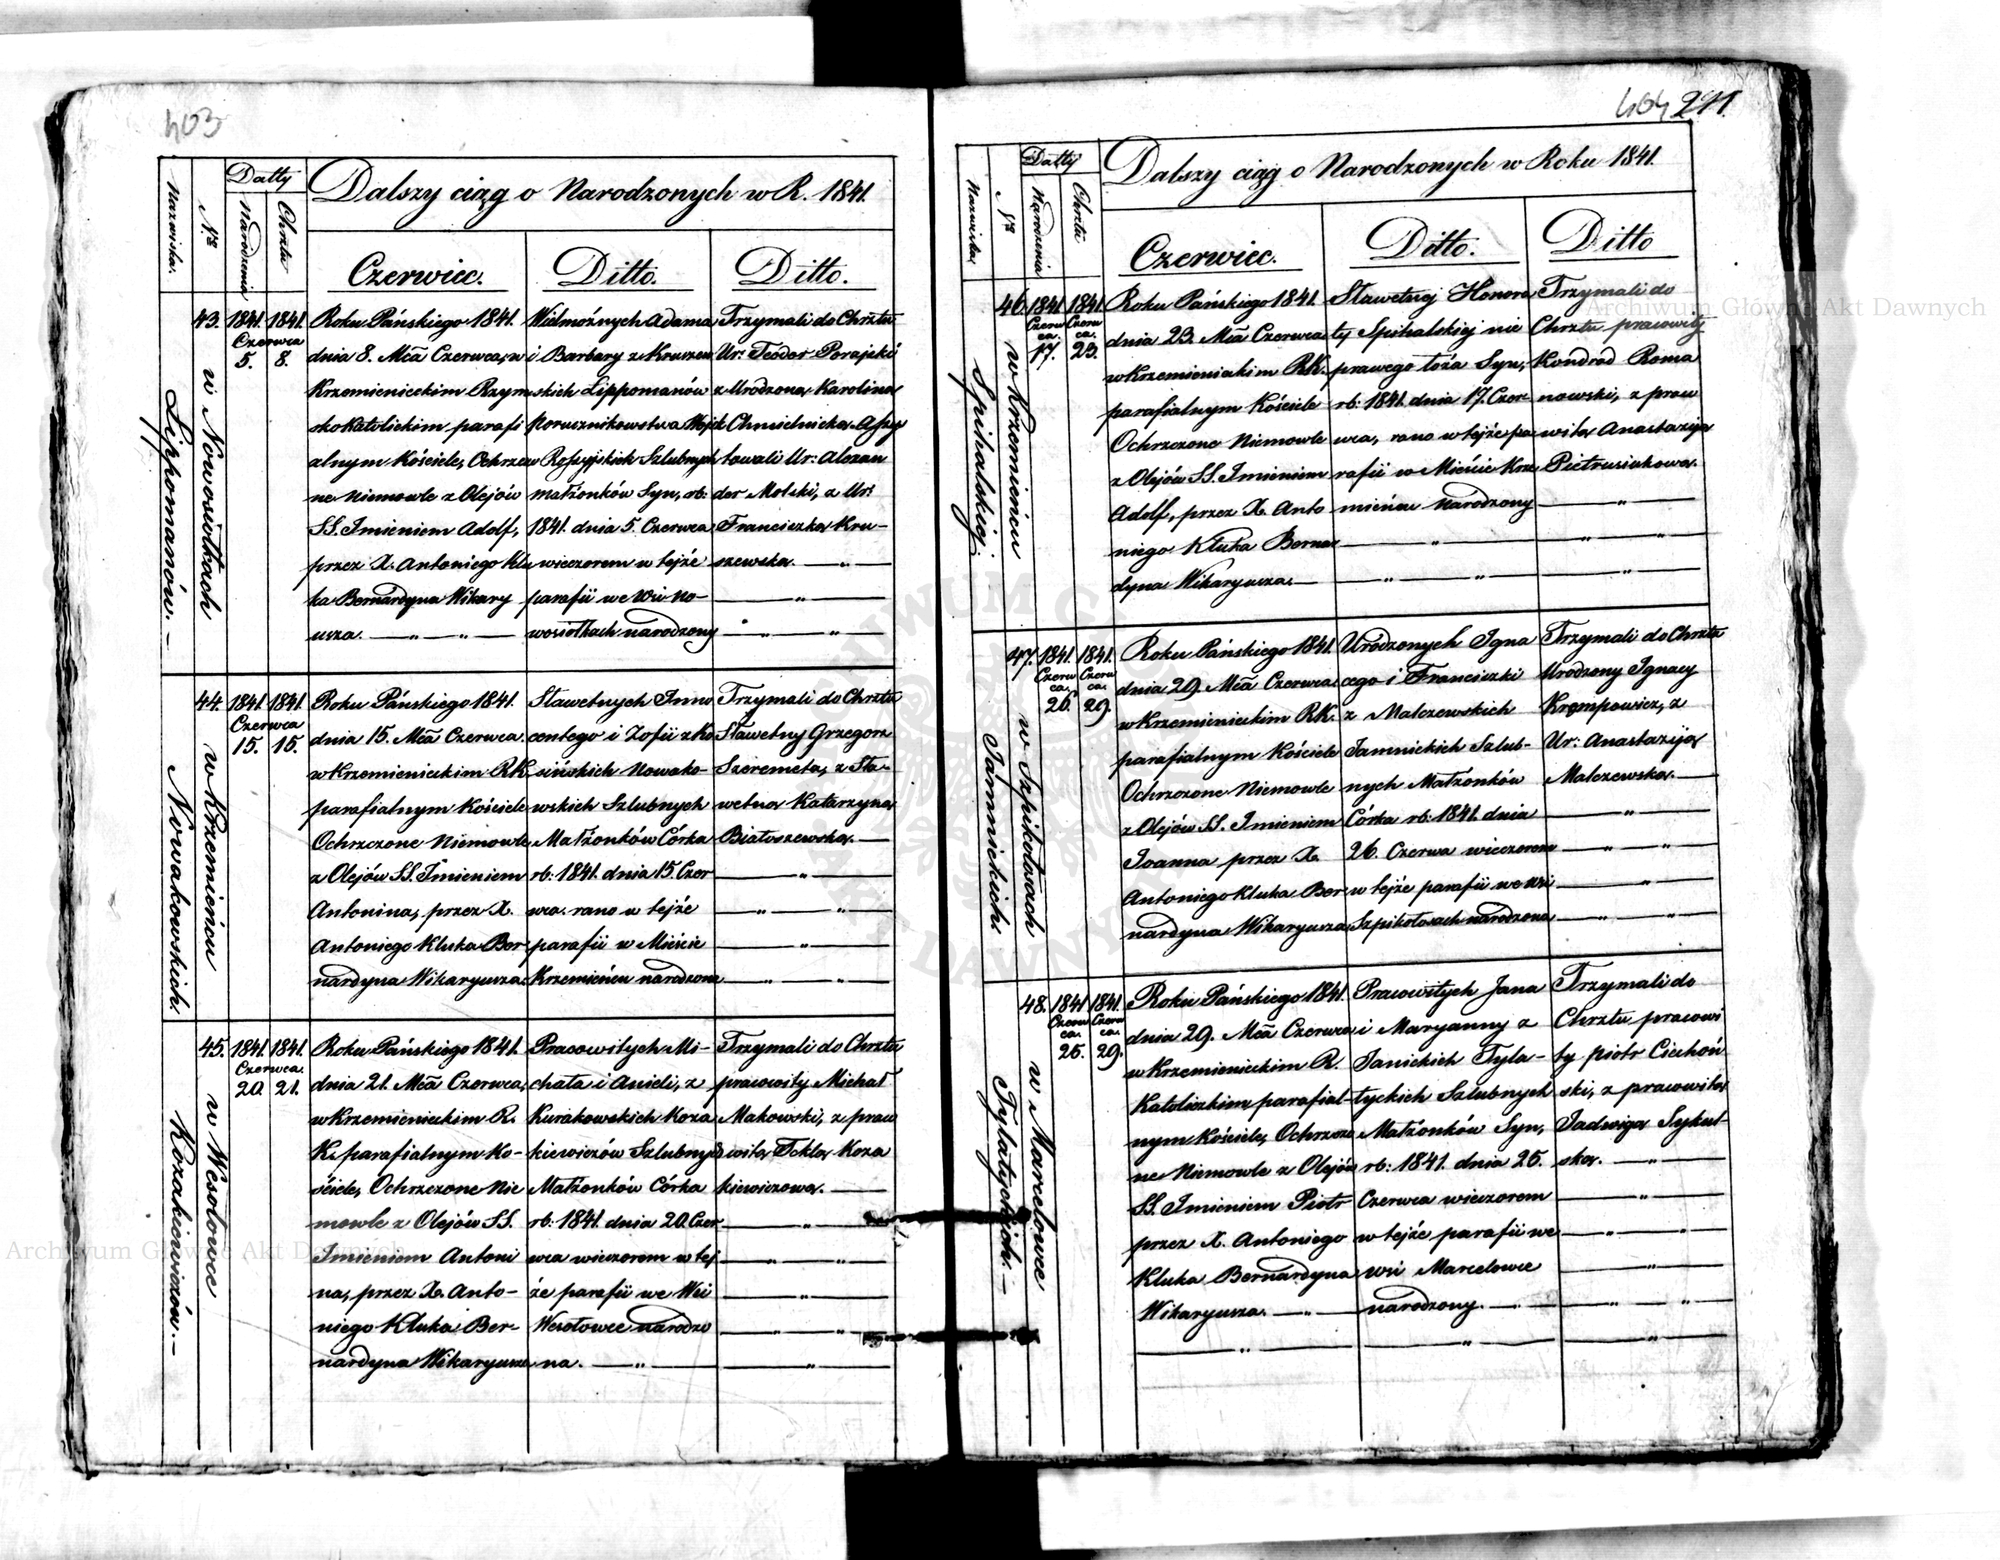 403
Datty
Dalszy ciąg o Narodzonych w R. 1841.
Nazwiska.
N.º
Narodzenia
Chrztu
Czerwiec.
Ditto.
Ditto.
Lippomanów. —
w Nowosiołkach
43.
1841. 1841.
Czerwca
5. 8.
Roku Pańskiego 1841.
dnia 8. Mca Czerwca, w
Krzemienieckim Rzym
sko Katolickim parafi
alnym Kościele, Ochrzczo
ne Niemowle z Olejów
SS. Imieniem Adolf,
przez X. Antoniego Klu
ka Bernardyna Wikary
usza. — „ — „ —
Wielmożnych Adama
i Barbary z Kruszew
skich Lippomanów
Porucznikowstwa Wojsk
Rossyjskich Szlubnych
małżonków Syn, rb:
1841. dnia 5. Czerwca
wieczorem w tejże
parafii we Wsi No-
wosiołkach narodzony
Trzymali do Chrztu
Ur: Teodor Porajski
z Urodzoną Karoliną
Chmielnicką. Assy
stowali Ur: Alexan
der Molski, z Ur:
Franciszką Kru-
szewską. — „ —
Nowakowskich.
w Krzemieńcu
44.
1841. 1841.
Czerwca
15. 15.
Roku Pańskiego 1841.
dnia 15. Mca Czerwca.
w Krzemienieckim RK.
parafialnym Kościele
Ochrzczone Niemowle
z Olejów SS. Imieniem
Antonina, przez X.
Antoniego Kluka Ber
nardyna Wikaryusza
Sławetnych Inno
centego i Zofii z Ko
sińskich Nowako-
wskich Szlubnych
Małżonków Córka
rb: 1841. dnia 15. Czer
wca. rano w tejże
parafii w Mieście
Krzemieńcu narodzona
Trzymali do Chrztu
Sławetny Grzegorz
Szeremeta, z Sła-
wetną Katarzyną
Białoszewską. —
Kozakiewiczów. —
w Wesołowce
45.
1841. 1841.
Czerwca.
20. 21.
Roku Pańskiego 1841.
dnia 21. Mca Czerwca,
w Krzemienieckim R.
K. parafialnym Ko-
ściele, Ochrzczone Nie
mowle z Olejów SS.
Imieniem Antoni
na, przez X. Anto-
niego Kluka Ber-
nardyna Wikaryusza
Pracowitych Mi-
chała i Anieli, z
Kurakowskich Koza
kiewiczów Szlubnych
Małżonków Córka
rb: 1841. dnia 20. Czer
wca wieczorem w tej
że parafii we Wsi
Wesołowce narodzo
na. — „ —
Trzymali do Chrztu
pracowity Michał
Makowski, z praco
witą Teklą Koza
kiewiczową. —
404 211.
Datty
Dalszy ciąg o Narodzonych w Roku 1841.
Nazwiska
N.º
Narodzenia
Chrztu
Czerwiec.
Ditto.
Ditto
Spihalskiej.
w Krzemieńcu
46.
1841. 1841.
Czerw Czerw
ca. ca.
17. 23.
Roku Pańskiego 1841.
dnia 23. Mca Czerwca
w Krzemienieckim RK.
parafialnym Kościele
Ochrzczone Niemowle
z Olejów SS. Imieniem
Adolf, przez X. Anto
niego Kluka Berna
dyna Wikaryusza. —
Sławetnej Honora
ty Spihalskiej nie
prawego łoża Syn,
rb: 1841. dnia 17. Czer
wca, rano w tejże pa
rafii w Mieście Krze
mieńcu narodzony
Trzymali do
Chrztu pracowity
Kondrad Roma
nowski, z praco
witą Anastazyą
Pietrusiukową.
Jamnickich
w Szpikołosach
47.
1841. 1841.
Czerw Czerw
ca. ca.
26. 29.
Roku Pańskiego 1841.
dnia 29. Mca Czerwca.
w Krzemienieckim RK.
parafialnym Kościele
Ochrzczone Niemowle
z Olejów SS. Imieniem
Joanna przez X.
Antoniego Kluka Ber
nardyna Wikaryusza
Urodzonych Igna
cego i Franciszki
z Malczewskich
Jamnickich Szlub-
nych Małżonków
Córka rb: 1841. dnia
26. Czerwa wieczorem
w tejże parafii we wsi
Szpikołosach narodzona
Trzymali do Chrztu
Urodzony Ignacy
Krompowicz, z
Ur: Anastazyą
Malczewską. —
Tylatyckich. —
w Marcelowce
48.
1841. 1841.
Czerw Czerw
ca. ca.
25. 29.
Roku Pańskiego 1841.
dnia 29. Mca Czerwca
w Krzemienieckim R.
Katolickim parafial-
nym Kościele, Ochrzczo
ne Niemowle z Olejów
SS. Imieniem Piotr
przez X. Antoniego
Kluka Bernardyna
Wikaryusza. — „ —
Pracowitych Jana
i Maryanny z
Janickich Tyla-
tyckich Szlubnych
Małżonków Syn,
rb: 1841. dnia 25.
Czerwca wieczorem
w tejże parafii we
wsi Marcelowce
narodzony. —
Trzymali do
Chrztu pracowi
ty piotr Ciechoń
ski, z pracowitą
Jadwigą Sykul-
ską. — „ —
Archiwum Główne Akt Dawnych
Archiwum Główne Akt Dawnych